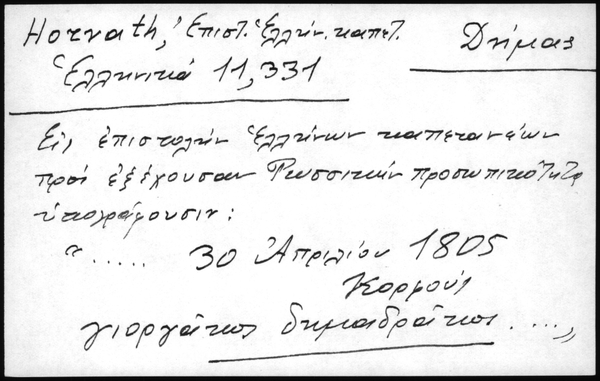 Horvath, Ἐπιστ. Ἑλλήν. καπετ.
Δήμας
Ἑλληνικά 11,331
Εἰς ἐπιστολήν Ἑλλήνων καπετανέων
πρός ἐξέχουσαν Ρωσσικήν προσωπικότητα
ὑπογράφουσιν:
"..... 30 Ἀπριλίου 1805
Κορφούς
γιοργάκις δημαδράκις ....,,